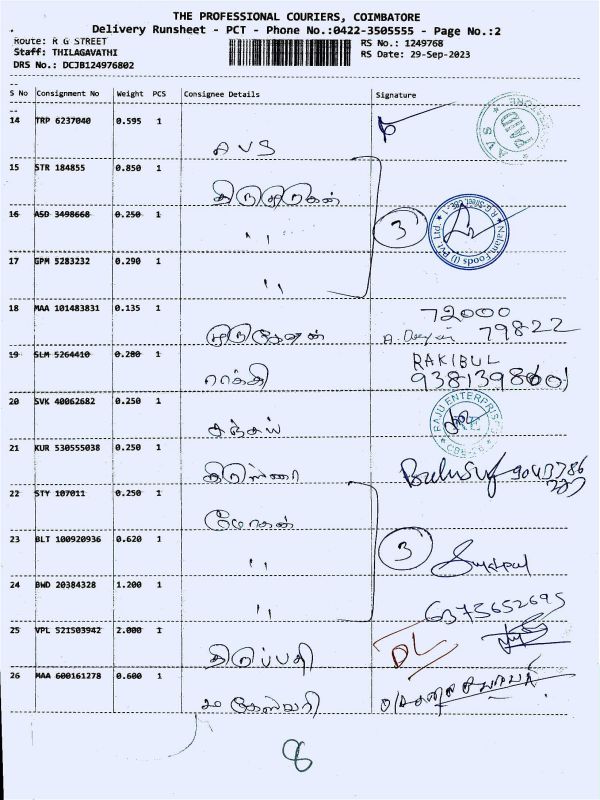 THE PROFESSIONAL COURIERS, COIMBATORE
Delivery Runsheet - PCT - Phone No.:0422-3505555 - Page No.:2
Route: R G STREET
RS No.: 1249768
Staff: THILAGAVATHI
RS Date: 29-Sep-2023
DRS No.: DCJB124976802
S No Consignment No Weight PCS Consignee Details Signature
14 TRP 6237040 0.595 1
AVS
AVS
15 STR 184855 0.850 1
திருமுருகன்
16 ASD 3498668 0.250 1
" 3
Nalam Foods (I) Pvt Ltd
17 GPM 5283232 0.290 1
"
18 MAA 101483831 0.135 1
72000
79822
19 SLM 5264410 0.280 1
ராக்கி
RAKIBUL
20 SVK 40062682 0.250 1
சஞ்சய்
RAJU ENTERPRISES
21 KUR 530555038 0.250 1
22 STY 107011 0.250 1
மோகன்
23 BLT 100920936 0.620 1
" 3
24 BWD 20384328 1.200 1
"
6375652695
25 VPL 521503942 2.000 1
திருப்பதி
DL
26 MAA 600161278 0.600 1
8